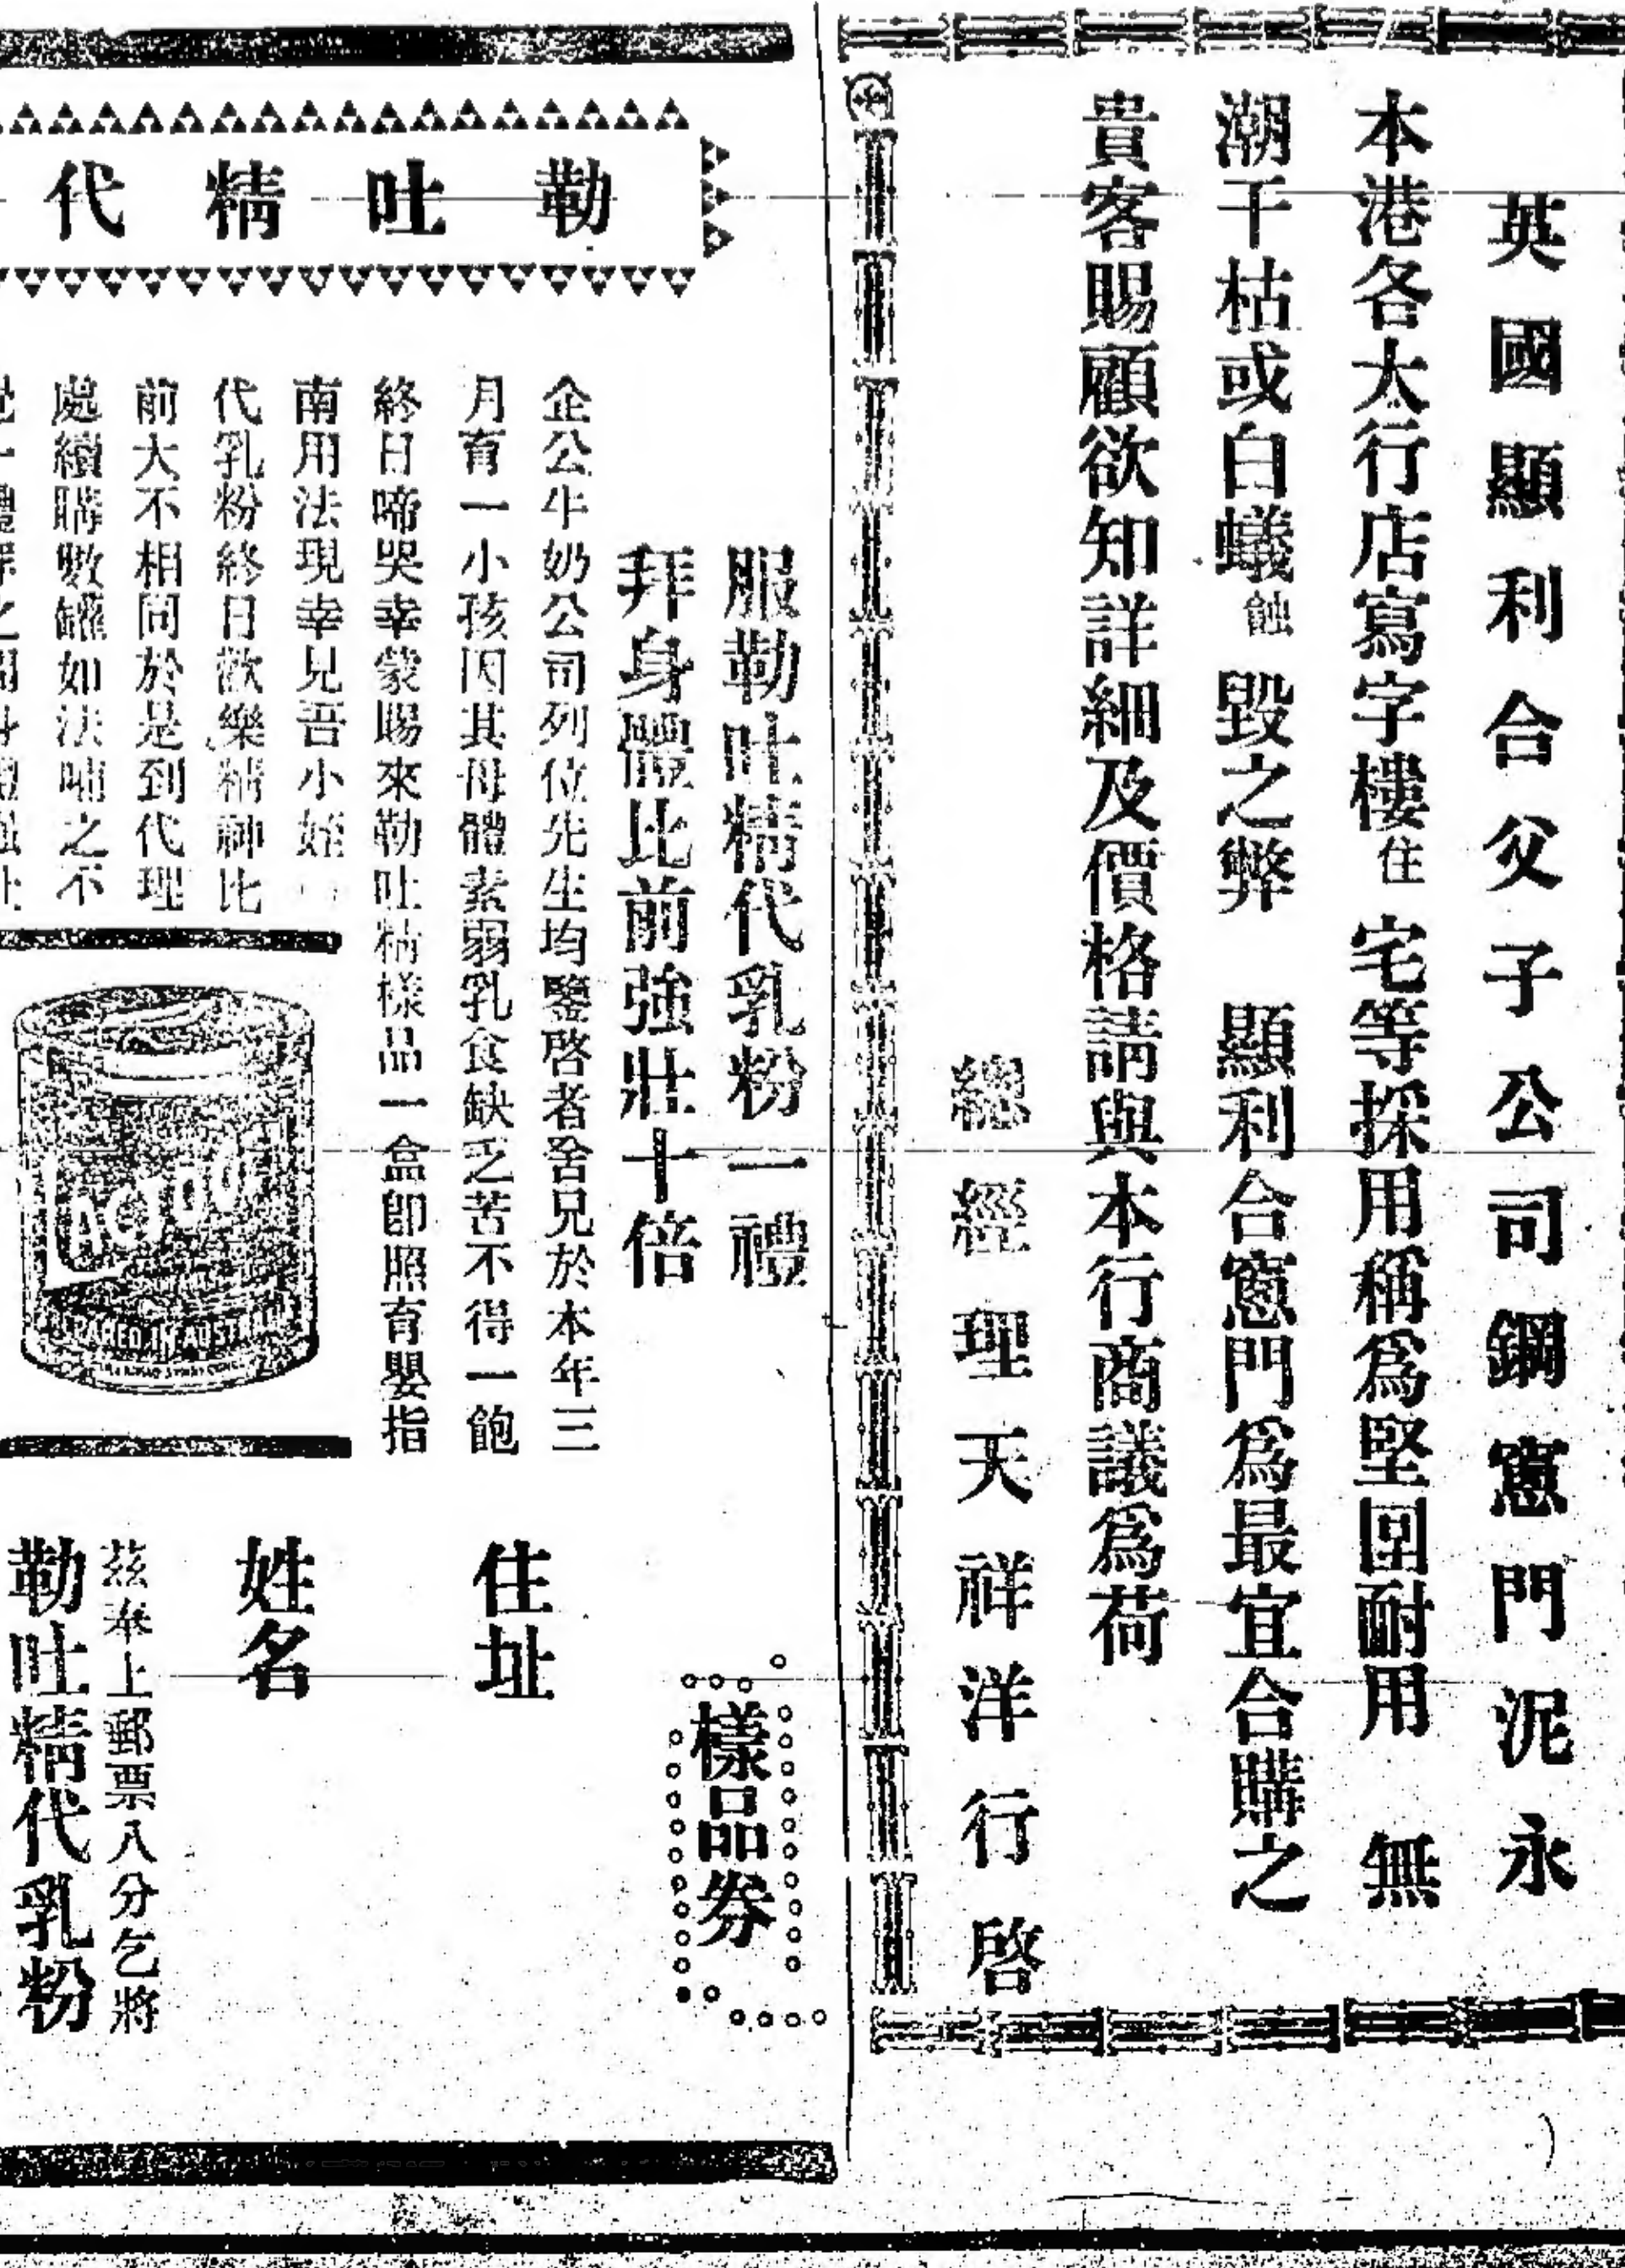 英國顯利合父子公司鋼窻門泥永
本港各大行店寫字樓住宅等採用稱爲堅固耐用 無
潮干枯或白蟻蝕毀之弊 顯利合窻門爲最宜合購之
貴客賜顧欲知詳細及價格請與本行商議爲荷
總經理天祥洋行啓
勒吐精代
服勒吐精代乳粉一禮
拜身體比前強壯十倍
企公牛奶公司列位先生均鑒啓者舍兄於本年三
月育一小孩因其母體素弱乳食缺乏苦不得一飽
終日啼哭幸蒙賜來勒吐精樣品一盒卽照育嬰指
南用法現幸見吾小姪
代乳粉終日歡樂精神比
前大不相同於是到代理
處續購數罐如法哺之不
LACTOGEN
PREPARED IN AUSTRALIA
樣品券
住址
姓名
茲奉上郵票八分乞將
勒吐精代乳粉